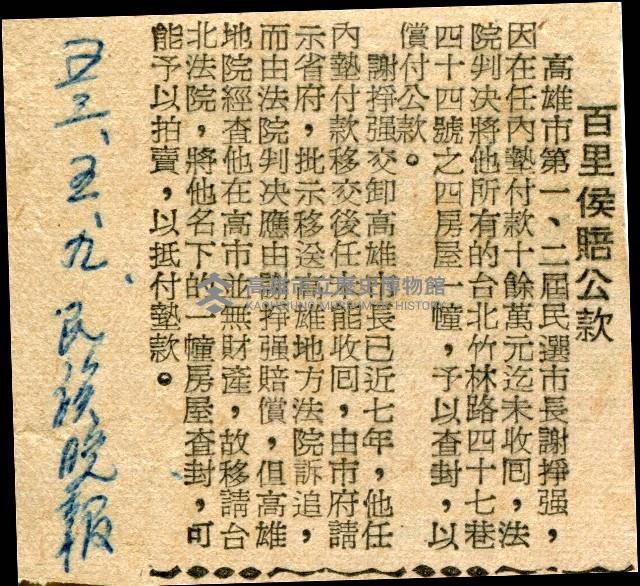 百里侯賠公款
高雄市第一、二屆民選市長謝掙强，
因在任內墊付款十餘萬元迄未收囘，法
院判决將他所有的台北竹林路四十七巷
四十四號之四房屋一幢，予以查封，以
償付公款。
謝掙强交卸高雄市長已近七年，他任
內墊付款移交後任未能收囘，由市府請
示省府，批示移送高雄地方法院訴追，
而由法院判决應由謝掙强賠償，但高雄
地院經查他在高市並無財產，故移請台
北法院，將他名下的一幢房屋査封，可
能予以拍賣，以抵付墊款。
五三、五、九、民族晚報
高雄市立歷史博物館
KAOHSIUNG MUSEUM OF HISTORY